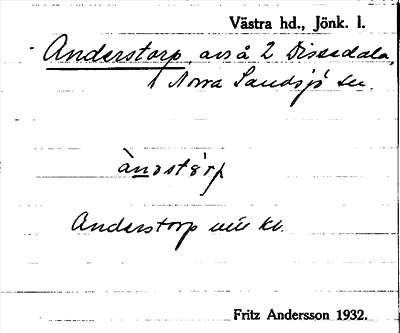 Västra hd., Jönk. l.
Anderstorp, avs å 2 Dissedala,
Norra Sandsjö sn.
ànostórp
Anderstorp
Fritz Andersson 1932.